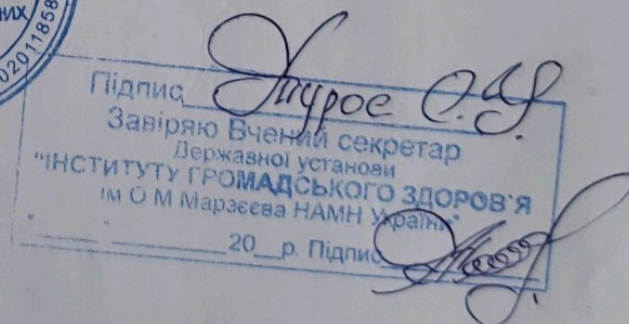 НИХ
02011858
Підпис Турос О.І.
Завіряю Вчений секретар
Державної установи
"ІНСТИТУТУ ГРОМАДСЬКОГО ЗДОРОВ'Я
ім О М Марзєєва НАМН України"
"___" ________ 20__р. Підпис